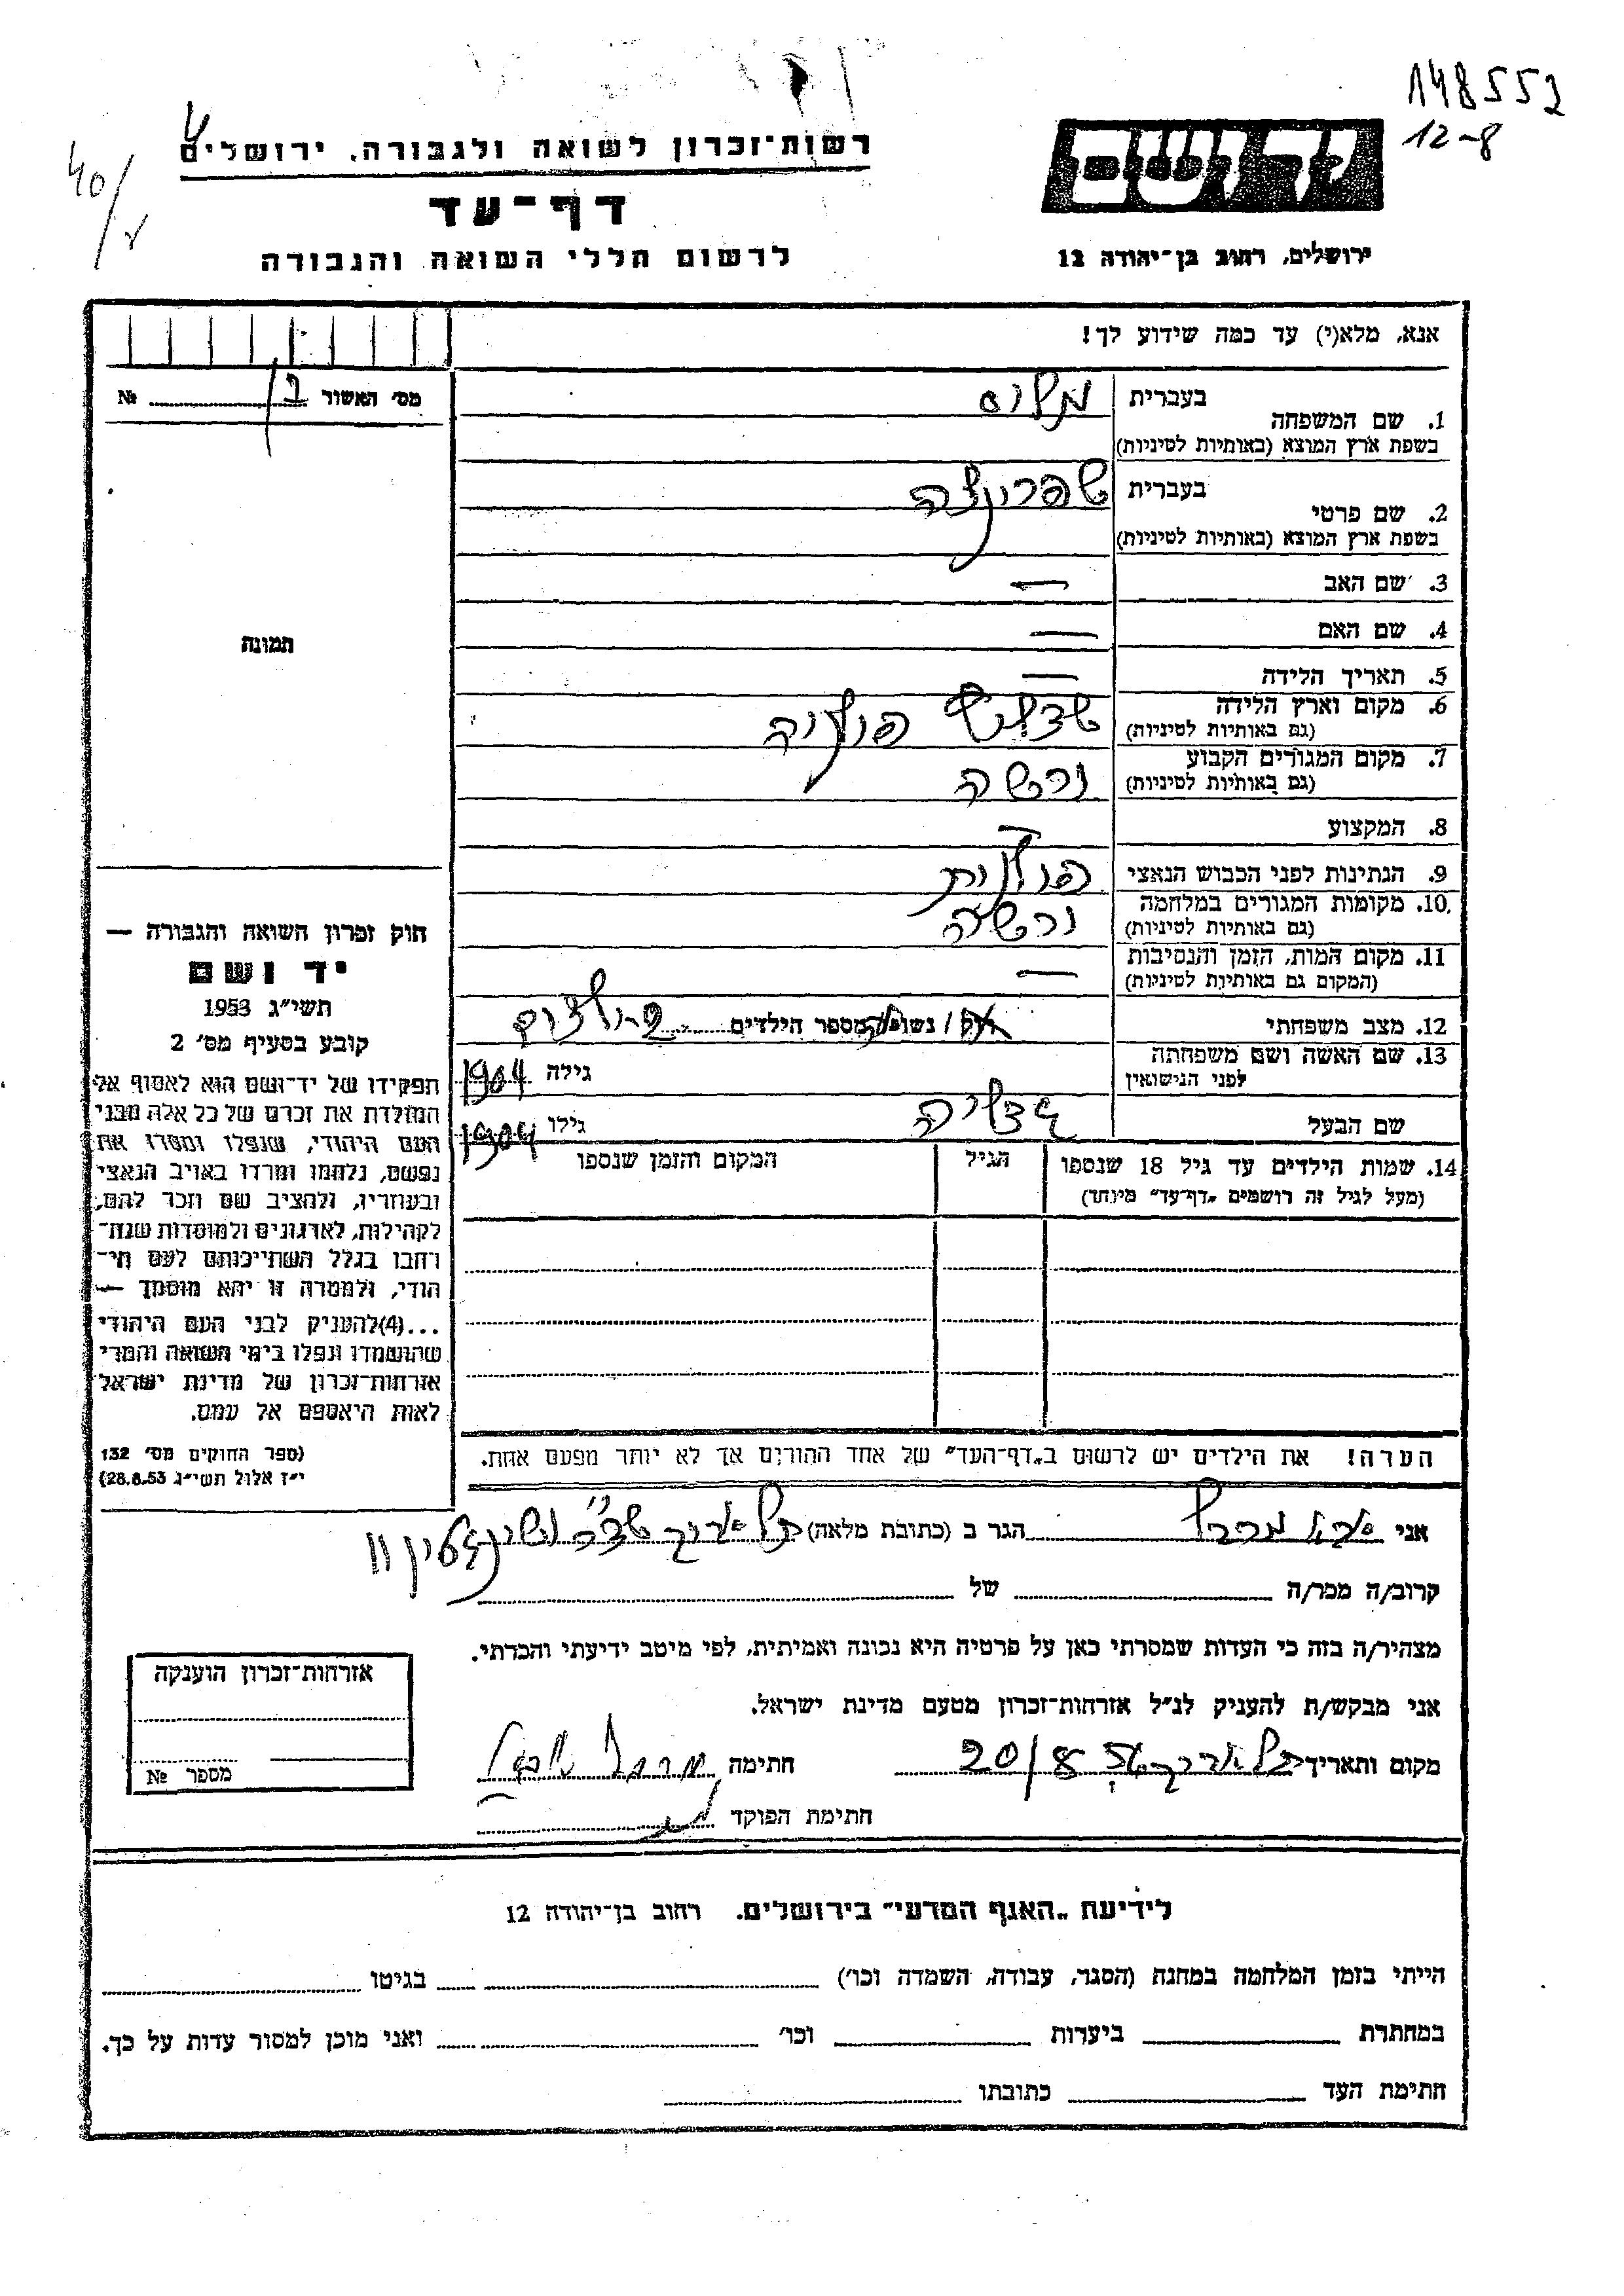 148552
12-8
40/
רשות־זכרון לשואה ולגבורה. ירושלים
דף־עד
לרשום חללי השואה והגבורה
ידושם
ירושלים, רחוב בן־יהודה 12
אנא, מלא(י) עד כמה שידוע לך!
מס׳ האשור №
1. שם המשפחה בעברית
בשפת ארץ המוצא (באותיות לטיניות)
2. שם פרטי בעברית שפרינצה
בשפת ארץ המוצא (באותיות לטיניות)
3. שם האב —
4. שם האם —
5. תאריך הלידה —
6. מקום וארץ הלידה שדליץ פולניה
(גם באותיות לטיניות)
7. מקום המגורים הקבוע ורשה
(גם באותיות לטיניות)
8. המקצוע —
9. הנתינות לפני הכבוש הנאצי פולנית
10. מקומות המגורים במלחמה ורשה
(גם באותיות לטיניות)
11. מקום המות, הזמן והנסיבות —
(המקום גם באותיות לטיניות)
12. מצב משפחתי רוק / נשוי/ מספר הילדים
13. שם האשה ושם משפחתה גילה 1904
לפני הנישואין
שם הבעל גדליה גילו 1904
14. שמות הילדים עד גיל 18 שנספו הגיל המקום והזמן שנספו
(מעל לגיל זה רושמים „דף־עד" מיוחד)
הערה! את הילדים יש לרשום ב„דף־העד" של אחד ההורים אך לא יותר מפעם אחת.
תמונה
חוק זכרון השואה והגבורה —
יד ושם
תשי״ג 1953
קובע בסעיף מס׳ 2
תפקידו של יד־ושם הוא לאסוף אל
המולדת את זכרם של כל אלה מבני
העם היהודי, שנפלו ומסרו את
נפשם, נלחמו ומרדו באויב הנאצי
ובעוזריו, ולהציב שם וזכר להם,
לקהילות, לארגונים ולמוסדות שנח־
רחבו בגלל השתייכותם לעם הי־
הודי, ולמטרה זו יהא מוסמך —
...(4)להעניק לבני העם היהודי
שהושמדו ונפלו בימי השואה והמרי
אזרחות־זכרון של מדינת ישראל
לאות היאספם אל עמם.
(ספר החוקים מס׳ 132
י״ז אלול תשי״ג 28.8.53)
אני הגר ב (כתובת מלאה)
קרוב/ה מכר/ה של
מצהיר/ה בזה כי העדות שמסרתי כאן על פרטיה היא נכונה ואמיתית, לפי מיטב ידיעתי והכרתי.
אני מבקש/ת להעניק לנ״ל אזרחות־זכרון מטעם מדינת ישראל.
מקום ותאריך 20/8 חתימה
חתימת הפוקד
אזרחות־זכרון הוענקה
מספר №
לידיעת „האגף המדעי" בירושלים. רחוב בן־יהודה 12
הייתי בזמן המלחמה במחנה (הסגר, עבודה, השמדה וכו׳) בגיטו
במחתרת ביערות וכו׳ ואני מוכן למסור עדות על כך.
חתימת העד כתובתו